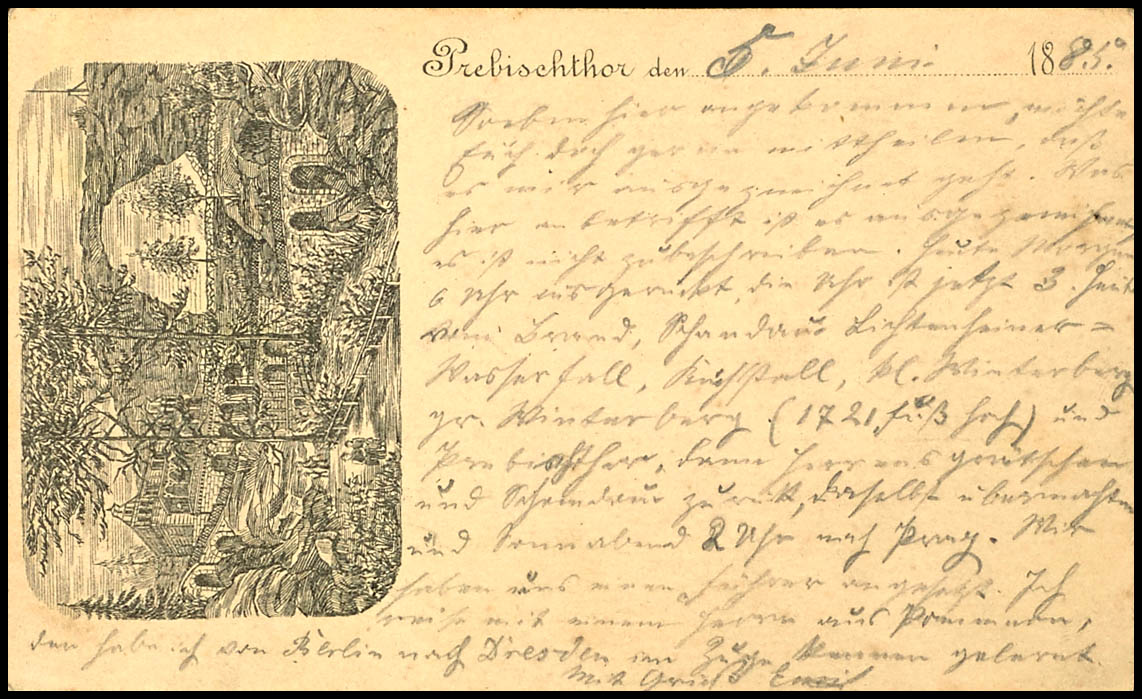 Prebischthor den 5. Juni 1885.
Soeben hier angekommen, möchte
Euch doch gerne mittheilen, daß
es mir ausgezeichnet geht. Was
hier anbetrifft ist es ausgezeichnet
es ist nicht zu beschreiben. Heute Morgen
6 Uhr ausgerückt, die Uhr ist jetzt 3. Heut
vom Brand, Schandau Lichtenheiner-
Wasserfall, Kuhstall, kl. Winterberg
gr. Winterberg (1721 fuß hoch) und
Prebischthor, dann
und Schandau zurück, daselbst übernachten
und Sonnabend 2 Uhr nach Prag. Wir
haben uns einen Führer angesetzt. Ich
reise mit einem Herrn aus Pommern,
den habe ich von Berlin nach Dresden im Zuge kennen gelernt.
Mit Gruß Emil